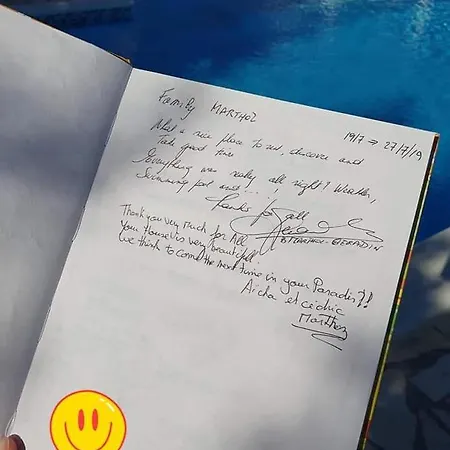 Family MARTHOZ
19/7 → 27/7/19
What a nice place to rest, discover and
Take good time
Everything was really all right! Weather,
Swimming pool and ... !
Thanks for all
Thank you very much for All
your House is very beautifull.
We think to come the next time in your Paradis?!
Aïcha et Cédric
Marthoz